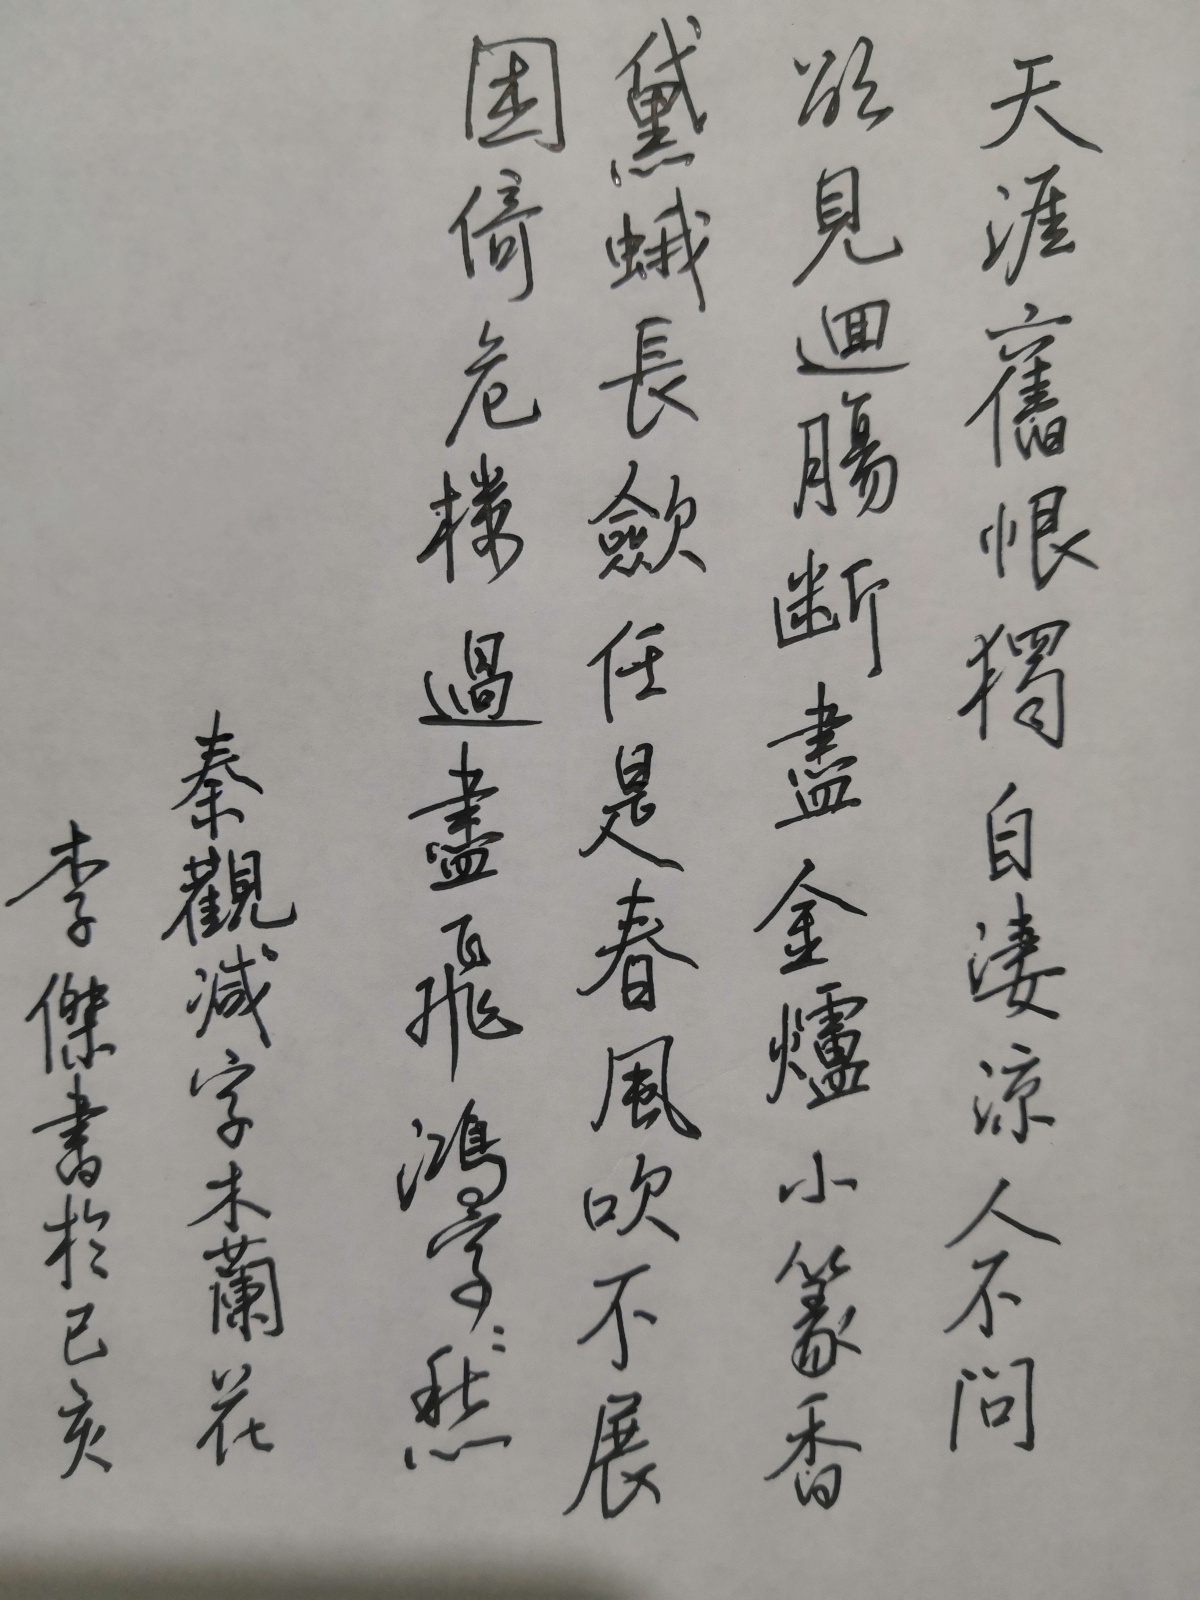 天涯舊恨獨自淒涼人不問
欲見迴腸斷盡金爐小篆香
黛蛾長斂任是春風吹不展
困倚危樓過盡飛鴻字字愁
秦觀減字木蘭花
李傑書於己亥